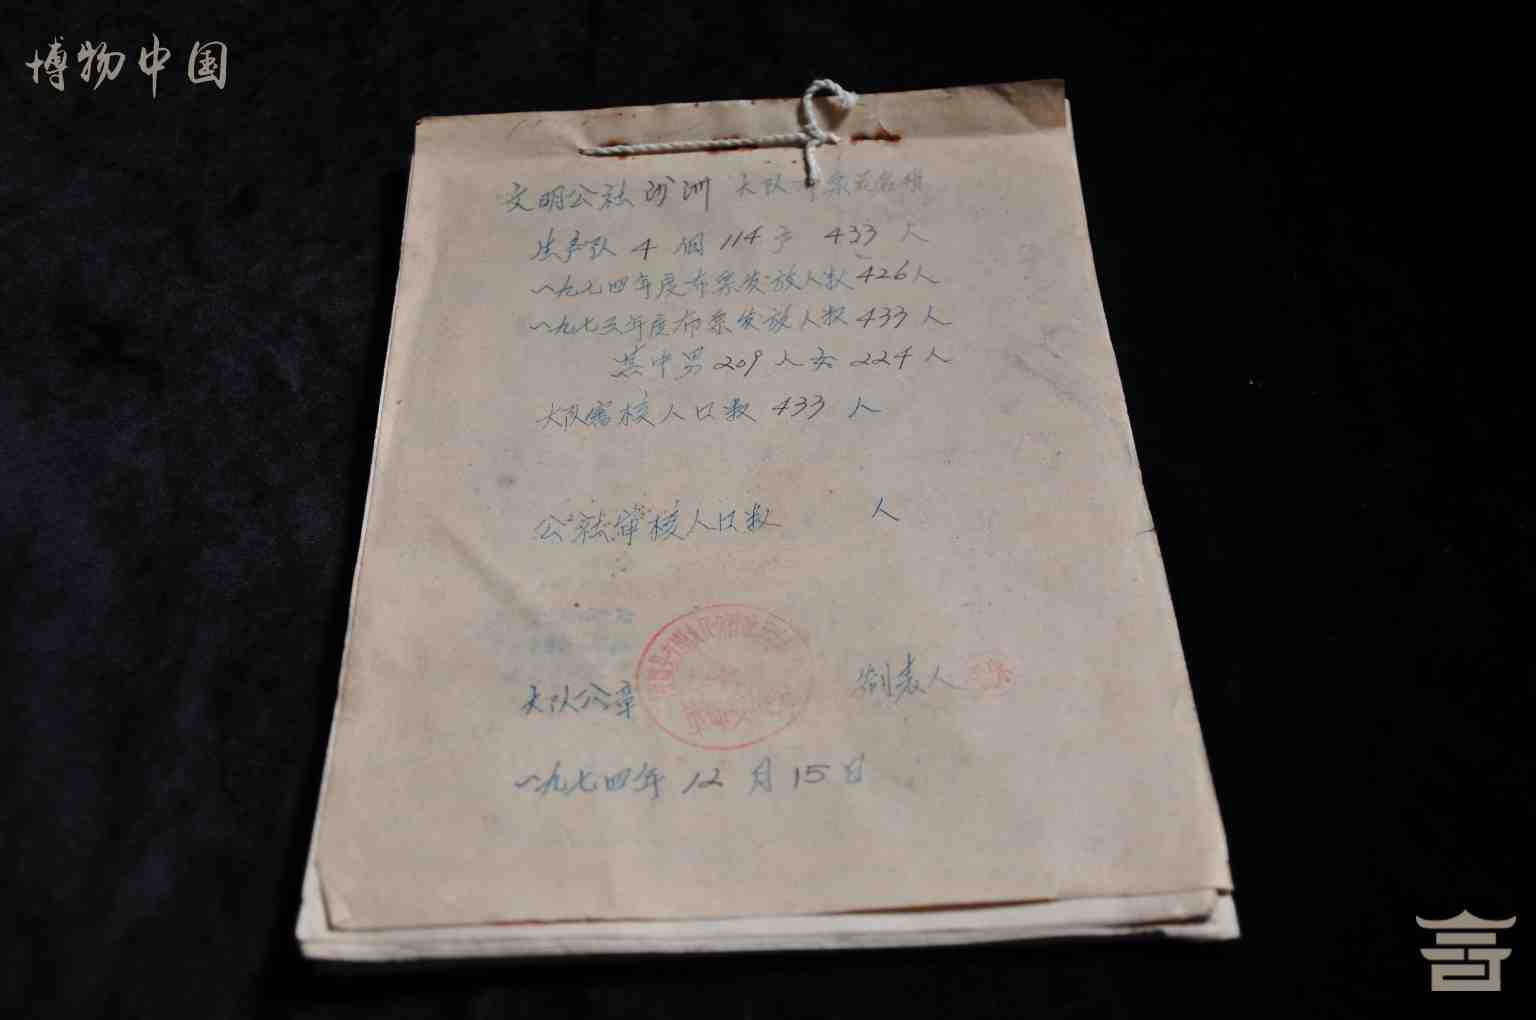 博物中国
文明公社沙洲 大队布票花名册
生产队 4 個 114 户 433 人
一九七四年度布票发放人数 426 人
一九七五年度布票发放人数 433 人
其中男 209 人女 224 人
大队审核人口数 433 人
公社审核人口数 人
大队公章 制表人
一九七四年 12 月 15 日